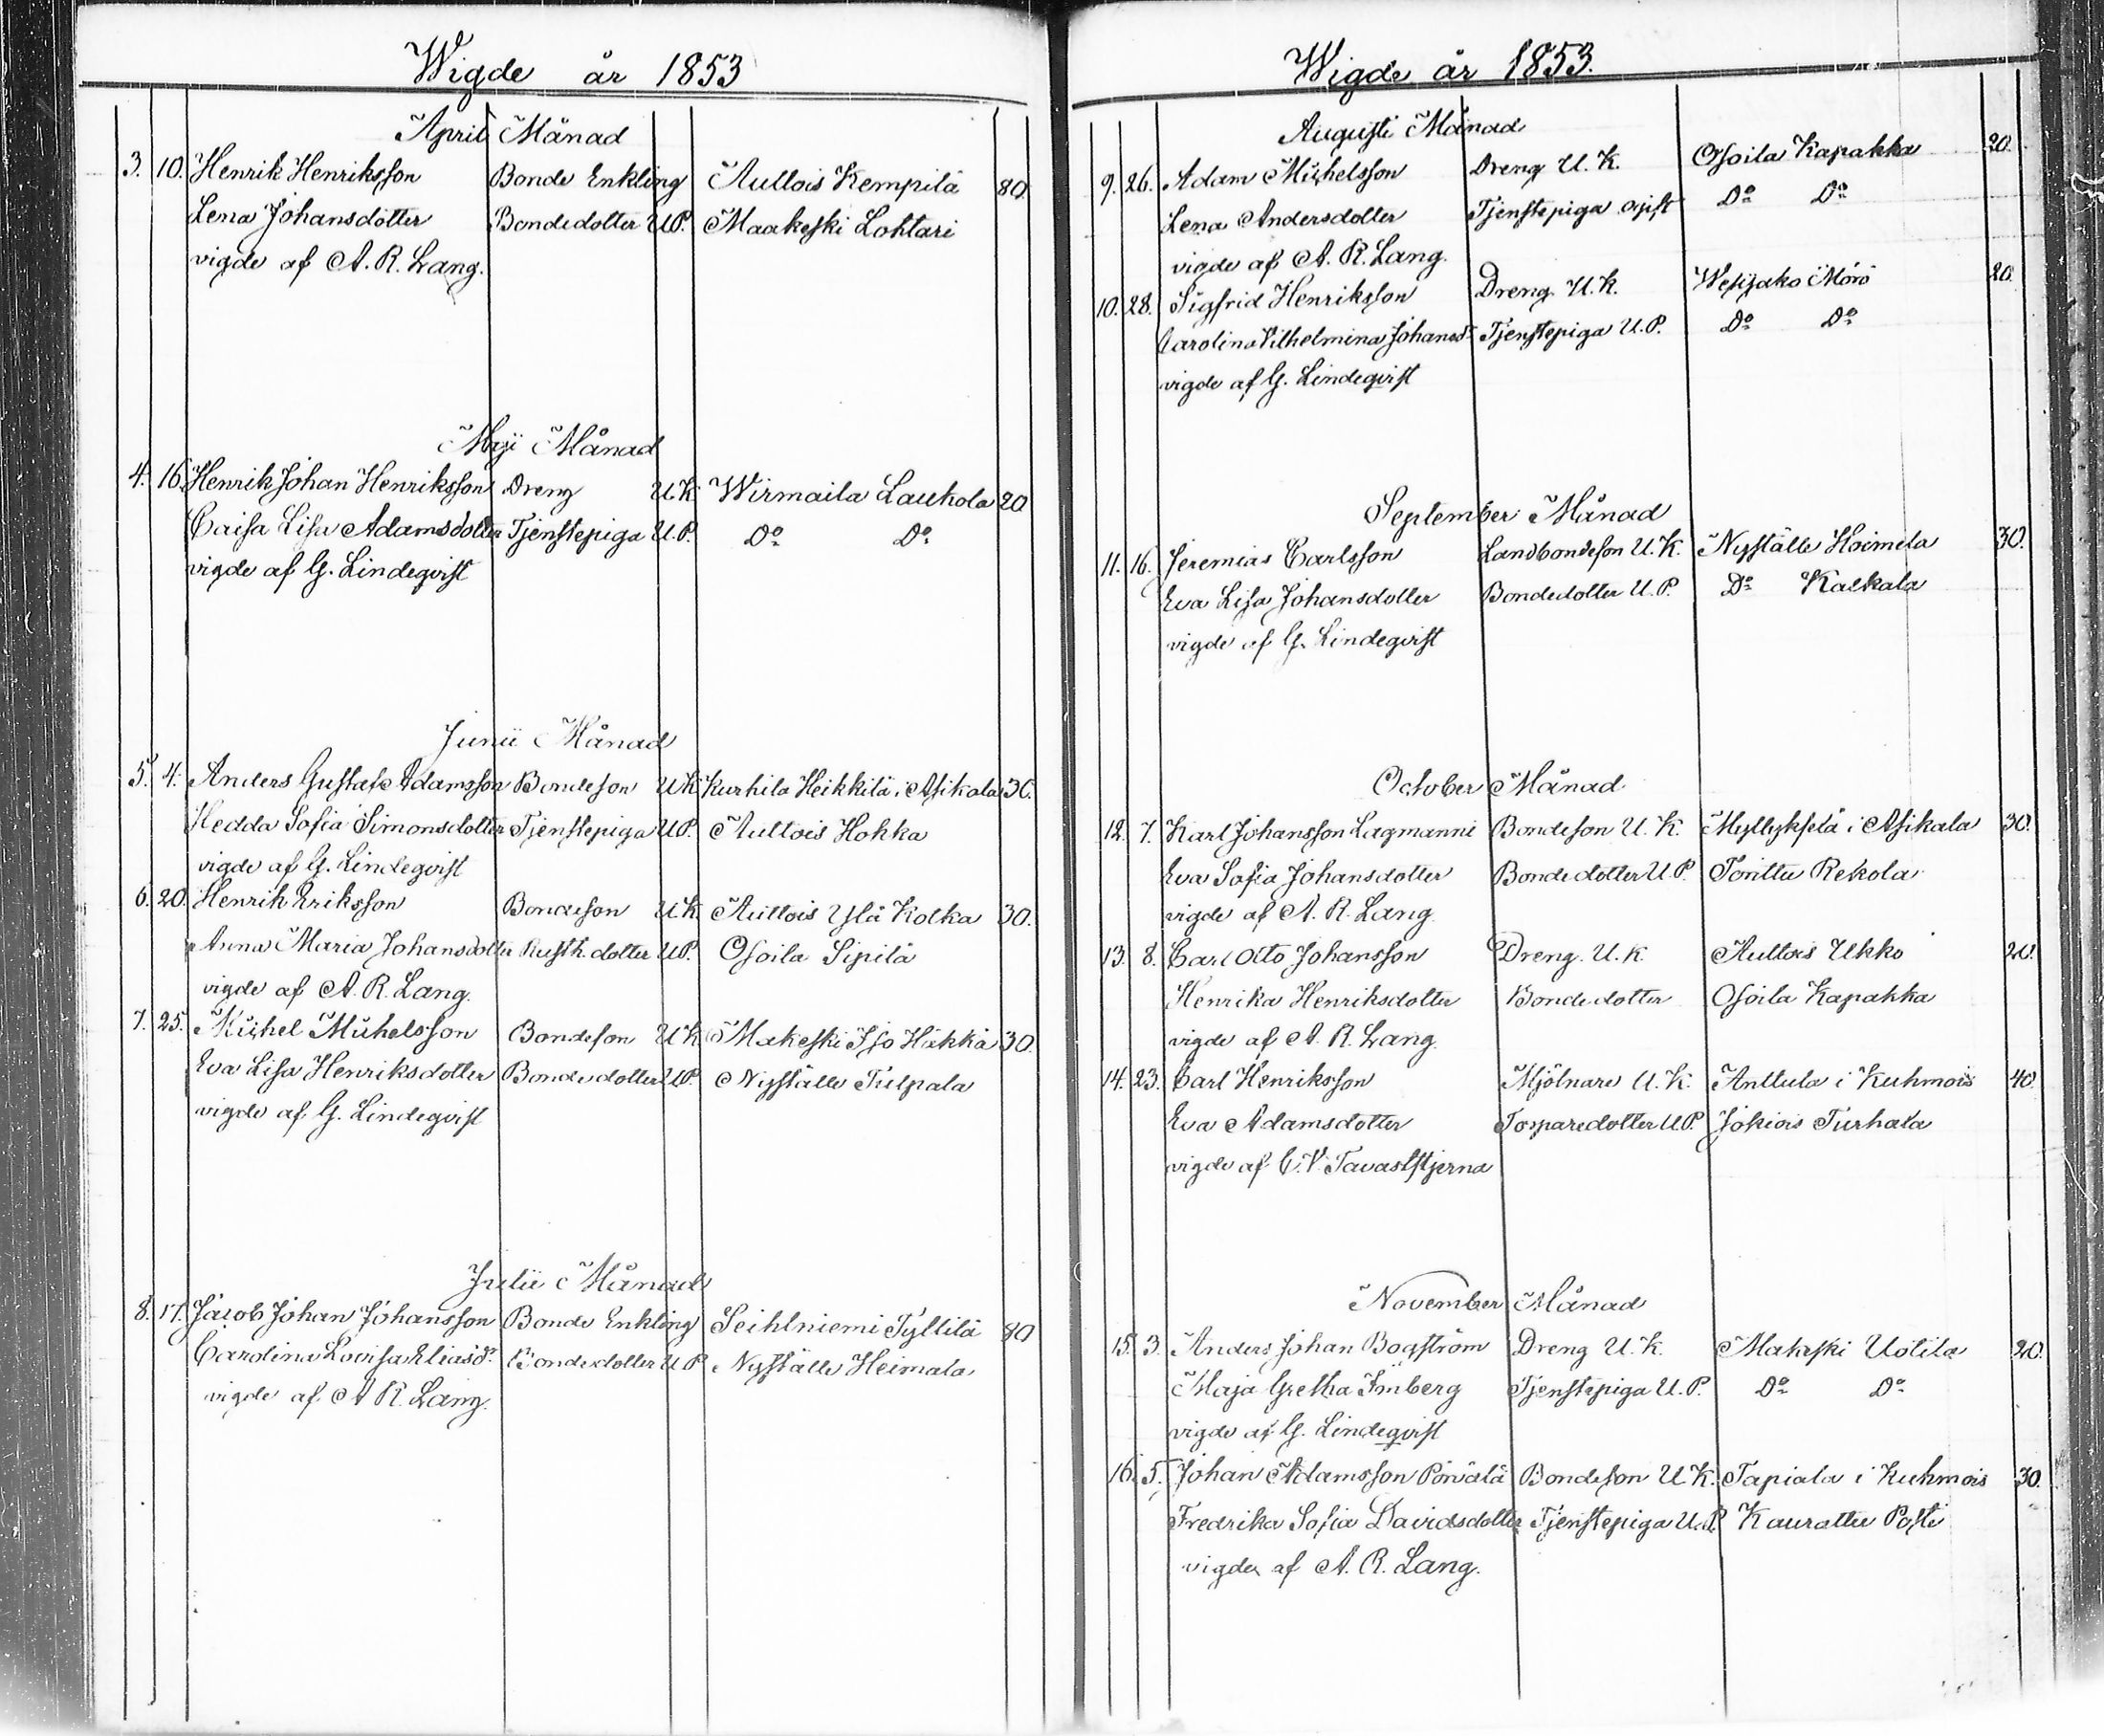 Wigde år 1853
April Månad
3. 10. Henrik Henriksson Bonde Enkling Auttois Kempilä 80.
Lena Johansdotter Bondedotter U.P. Maakeski Lohtari
vigde af A. R. Lang.
Maji Månad
4. 16. Henrik Johan Henriksson Dreng U.K. Wirmaila Laukola 20
Caisa Lisa Adamsdotter Tjenstepiga U.P. Do Do
vigde af G. Lindeqvist
Junii Månad
5. 4. Anders Gustaf Adamsson Bondeson U.K. Kurhila Heikkilä i Asikala 30.
Hedda Sofia Simonsdotter Tjenstepiga U.P. Auttois Hokka
vigde af G. Lindeqvist
6. 20. Henrik Eriksson Bondeson U.K. Auttois Ylä Kolka 30.
Anna Maria Johansdotter Rusth. dotter U.P. Osoila Sipilä
vigde af A. R. Lang.
7. 25. Michel Michelsson Bondeson U.K. Makeski Iso Hakka 30.
Eva Lisa Henriksdotter Bondedotter U.P. Nyställe Tulpala
vigde af G. Lindeqvist
Julii Månad
8. 17. Jacob Johan Johansson Bonde Enkling Seihlniemi Tyllilä 80
Carolina Lovisa Eliasdr. Bondedotter U.P. Nyställe Heimala
vigde af A R. Lang.
Wigde år 1853.
Augusti Månad
9. 26. Adam Michelsson Dreng U. K. Osoila Kapakka 20.
Lena Andersdotter Tjenstepiga ogift Do Do
vigde af A. R. Lang.
10. 28. Sigfrid Henriksson Dreng U. K. Wesijako Mörö 20.
Carolina Vilhelmina Johansdr Tjenstepiga U. P. Do Do
vigde af G. Lindeqvist
September Månad
11. 16. Jeremias Carlsson Landbondeson U. K. Nyställe Hoimela 30.
Eva Lisa Johansdotter Bondedotter U. P. Do Kaekala
vigde af G. Lindeqvist
October Månad
12. 7. Karl Johansson Lagmanni Bondeson U. K. Myllykselä i Asikala 30.
Eva Sofia Johansdotter Bondedotter U. P. Torittu Rekola
vigde af A. R. Lang.
13. 8. Carl Otto Johansson Dreng. U. K. Auttois Ukko 20.
Henrika Henriksdotter Bondedotter Osoila Kapakka
vigde af A. R. Lang.
14. 23. Carl Henriksson Mjölnare U. K. Anttula i Kuhmois 40.
Eva Adamsdotter Torparedotter U.P. Jokiois Turhala
vigde af C. V. Tavaststjerna
November Månad
15. 3. Anders Johan Bogström Dreng U. K. Makeski Uotila 20.
Maja Gretha Imberg Tjenstepiga U. P. Do Do
vigde af G. Lindeqvist
16. 5. Johan Adamsson Pörvälä Bondeson U. K. Tapiala i Kuhmois 30.
Fredrika Sofia Davidsdotter Tjenstepiga U.P. Kaurattu Posti
vigde af A. R. Lang.